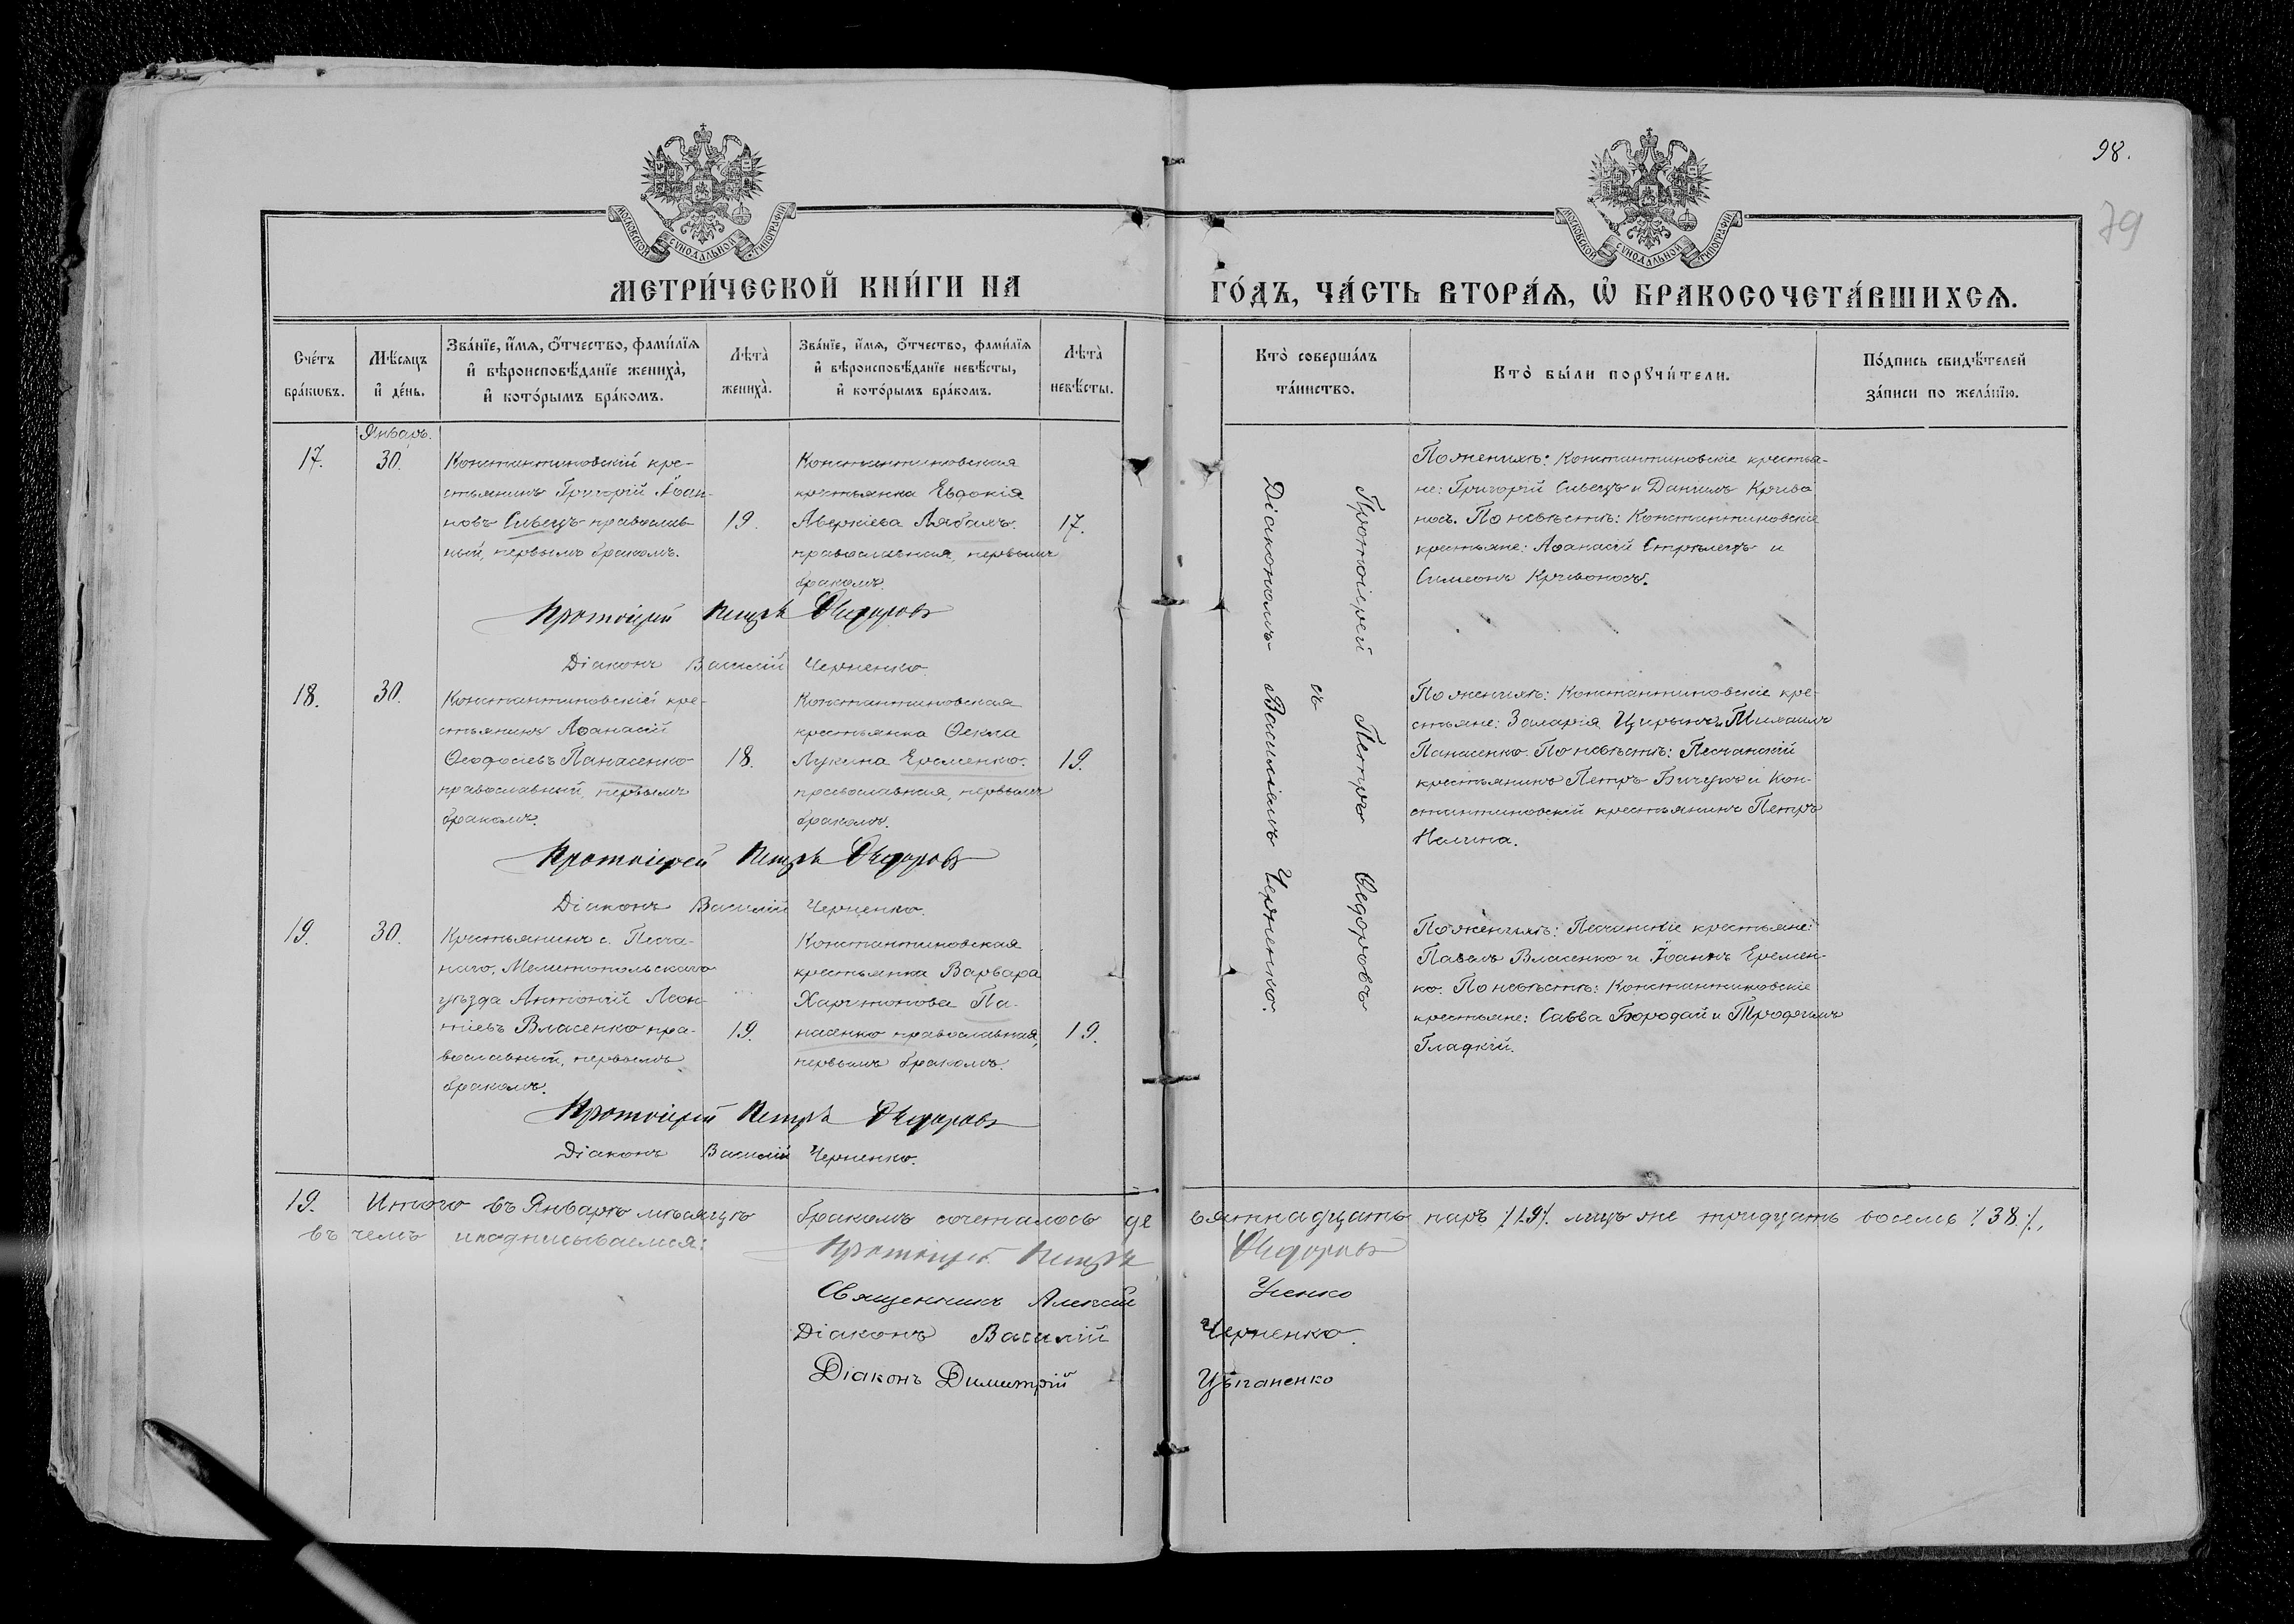 98.
79
МОСКОВСКОЙ СѴНОДАЛЬНОЙ ТИПОГРАФІИ
МОСКОВСКОЙ СѴНОДАЛЬНОЙ ТИПОГРАФІИ
МЕТРИ́ЧЕСКОЙ КНИ́ГИ НА
ГО́ДЪ, ЧА́СТЬ ВТОРА́Ѧ, Ѽ БРАКОСОЧЕТА́ВШИХСѦ.
Сче́тъ
бра́кѡвъ.
Мѣ́сяцъ
и҆ де́нь.
Зва́нїе, и҆́мѧ, ѻ҆́тчество, фами́лїѧ
и҆ вѣроисповѣ́данїе жениха̀,
и҆ кото́рымъ бра́комъ.
Лѣта̀
жениха̀.
Зва́нїе, и҆́мѧ, ѻ҆́тчество, фами́лїѧ
и҆ вѣроисповѣ́данїе невѣ́сты,
и҆ кото́рымъ бра́комъ.
Лѣта̀
невѣ́сты.
Кто̀ соверша́лъ
та́инство.
Кто̀ бы́ли порꙋчи́тели.
По́дпись свидѣ́телей
за́писи по жела́нїю.
Январь.
17.
30.
Константиновскій кре-
стьянинъ Григорій Іоан-
новъ Сивецъ православ-
ный, первымъ бракомъ.
19.
Константиновская
крестьянка Евдокія
Аверкіева Лябахъ
православная, первымъ
бракомъ.
17.
По женихѣ: Константиновскіе крестья-
не: Григорій Сивецъ и Даніилъ Криво
носъ. По невѣстѣ: Константиновскіе
крестьяне: Аѳанасій Стрѣлецъ и
Симеонъ Кривоносъ.
Протоіерей Петръ Ѳедоровъ
Діаконъ Василій Черненко.
18.
30.
Константиновскій кре-
стьянинъ Аѳанасій
Ѳеодосіевъ Панасенко
православный, первымъ
бракомъ.
18.
Константиновская
крестьянка Ѳекла
Лукина Еременко.
православная, первымъ
бракомъ.
19.
По женихѣ: Константиновскіе кре-
стьяне: Захарія Цирынъ и Михаилъ
Панасенко. По невѣстѣ: Песчанскій
крестьянинъ Петръ Бичукъ и Кон-
стантиновскій крестьянинъ Петръ
Налина.
Протоіерей Петръ Ѳедоровъ
Діаконъ Василій Черненко.
19.
30.
Крестьянинъ с. Песча-
наго, Мелитопольскаго
уѣзда Антоній Леон-
тіевъ Власенко пра-
вославный, первымъ
бракомъ.
19.
Константиновская
крестьянка Варвара
Харитонова Па-
насенко православная,
первымъ бракомъ.
19.
По женихѣ: Песчанскіе крестьяне:
Павелъ Власенко и Іоаннъ Еремен-
ко. По невѣстѣ: Константиновскіе
крестьяне: Савва Бородай и Трофимъ
Гладкій.
Протоіерей Петръ Ѳедоровъ
Діаконъ Василій Черненко.
Протоіерей Петръ Ѳедоровъ
съ
Діакономъ Василіемъ Черненко.
19. Итого въ Январѣ мѣсяцѣ бракомъ сочеталось девятнадцать паръ /19/. лицъ же тридцать восемь /38/,
въ чемъ и подписываемся:
Протоіерей Петръ Ѳедоровъ
Священникъ Алексій Усенко
Діаконъ Василій Черненко.
Діаконъ Димитрій Цыганенко